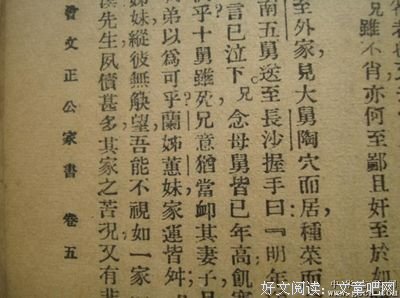 兄雖不肖亦何至鄙且奸至於如
至外家見大舅陶穴而居種菜而
南五舅送至長沙握手曰『明年
言已泣下兄念母舅皆已年高飢
乎十舅雖死兄意猶當卹其妻子且
弟以爲可乎蘭姊蕙妹家運皆舛
姊妹縱彼無觖望吾能不視如一家
漢先生夙債甚多其家之苦況又有非
文正公家書 卷五
好文阅读:文章吧网